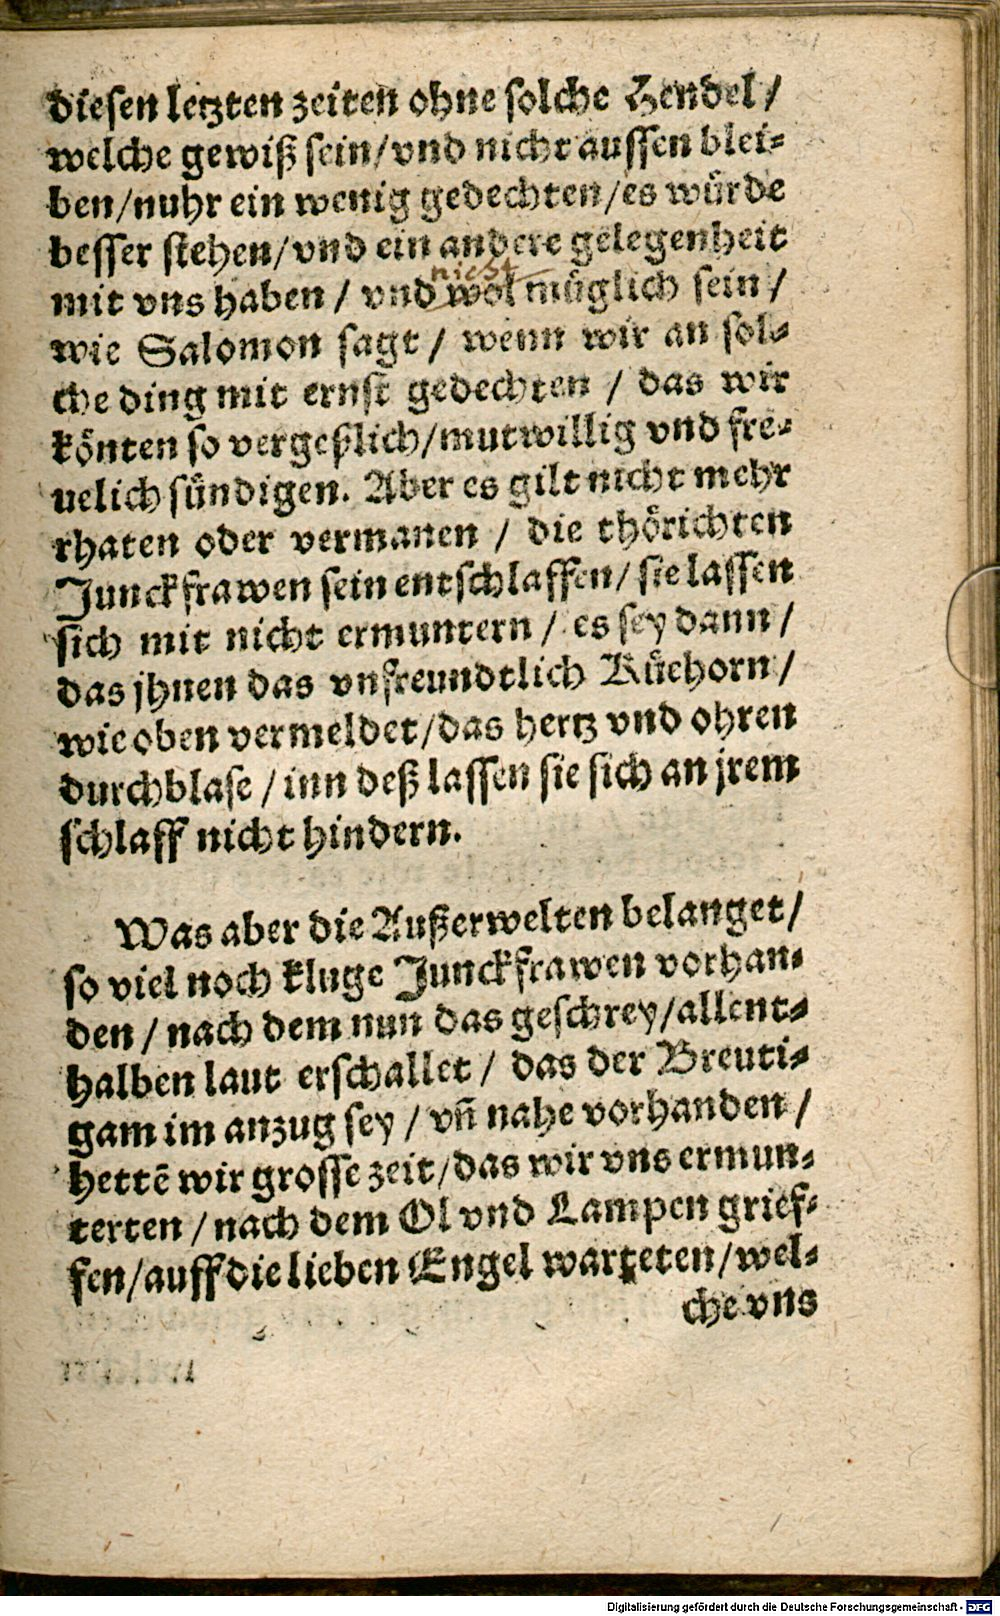 diesen letzten zeiten ohne solche Hendel /
welche gewiß sein/vnd nicht aussen blei-
ben/nuhr ein wenig gedechten/es würde
besser stehen/vnd ein andere gelegenheit
nicht
mit vns haben / vnd wol müglich sein /
wie Salomon sagt / wenn wir an sol-
che ding mit ernst gedechten / das wir
könten so vergeßlich/mutwillig vnd fre-
uelich sündigen. Aber es gilt nicht mehr
rhaten oder vermanen / die thörichten
Junckfrawen sein entschlaffen/ sie lassen
sich mit nicht ermuntern / es sey dann /
das jhnen das vnfreundtlich Küehorn /
wie oben vermeldet/das hertz vnd ohren
durchblase / inn deß lassen sie sich an jrem
schlaff nicht hindern.
Was aber die Außerwelten belanget/
so viel noch kluge Junckfrawen vorhan-
den / nach dem nun das geschrey/allent-
halben laut erschallet / das der Breuti-
gam im anzug sey / vñ nahe vorhanden /
hettē wir grosse zeit/das wir vns ermun-
terten / nach dem Ol vnd Lampen grief-
fen/auff die lieben Engel warteten/wel-
che vns
Digitalisierung gefördert durch die Deutsche Forschungsgemeinschaft - DFG